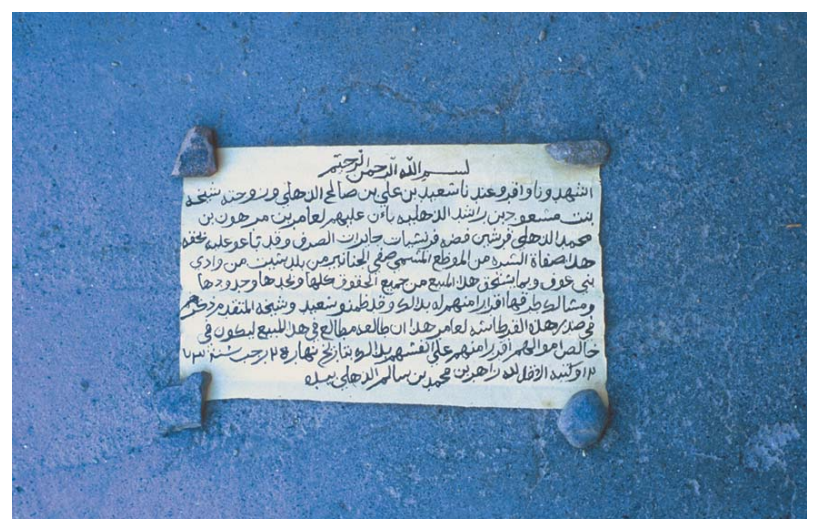 بسم الله الرحمن الرحيم
اشهدونا واقرو عندنا سعيد بن علي بن صالح الذهلي وزوجته شيخه
بنت مسعود بن راشد الذهليه بأن عليهم لعامر بن مرهون بن
محمد الذهلي قرشين فضه فرنسيات جايزات الصرف وقد باعو عليه بحقه
هذا صفاة السدره من الموضع المسمى صفي الخنانير من بلد سيت من وادي
بني عوف وبما يستحق هذا المبيع من جميع الحقوق كلها وبحدها وحدودها
ومشالها وطرقها اقرارا منهم له بذالك وقد ضمنو سعيد وشيخه المتقدم ذكرهم
في صدر هذه القرطاسه لعامر هذا ان طالعه مطالع في هذا المبيع ليكون في
خالص اموالهم اقرارا منهم على انفسهم بذالك بتاريخ نهار ٢ رجب سنة
وكتبه الاقل لله زاهر بن محمد بن سالم الذهلي بيده